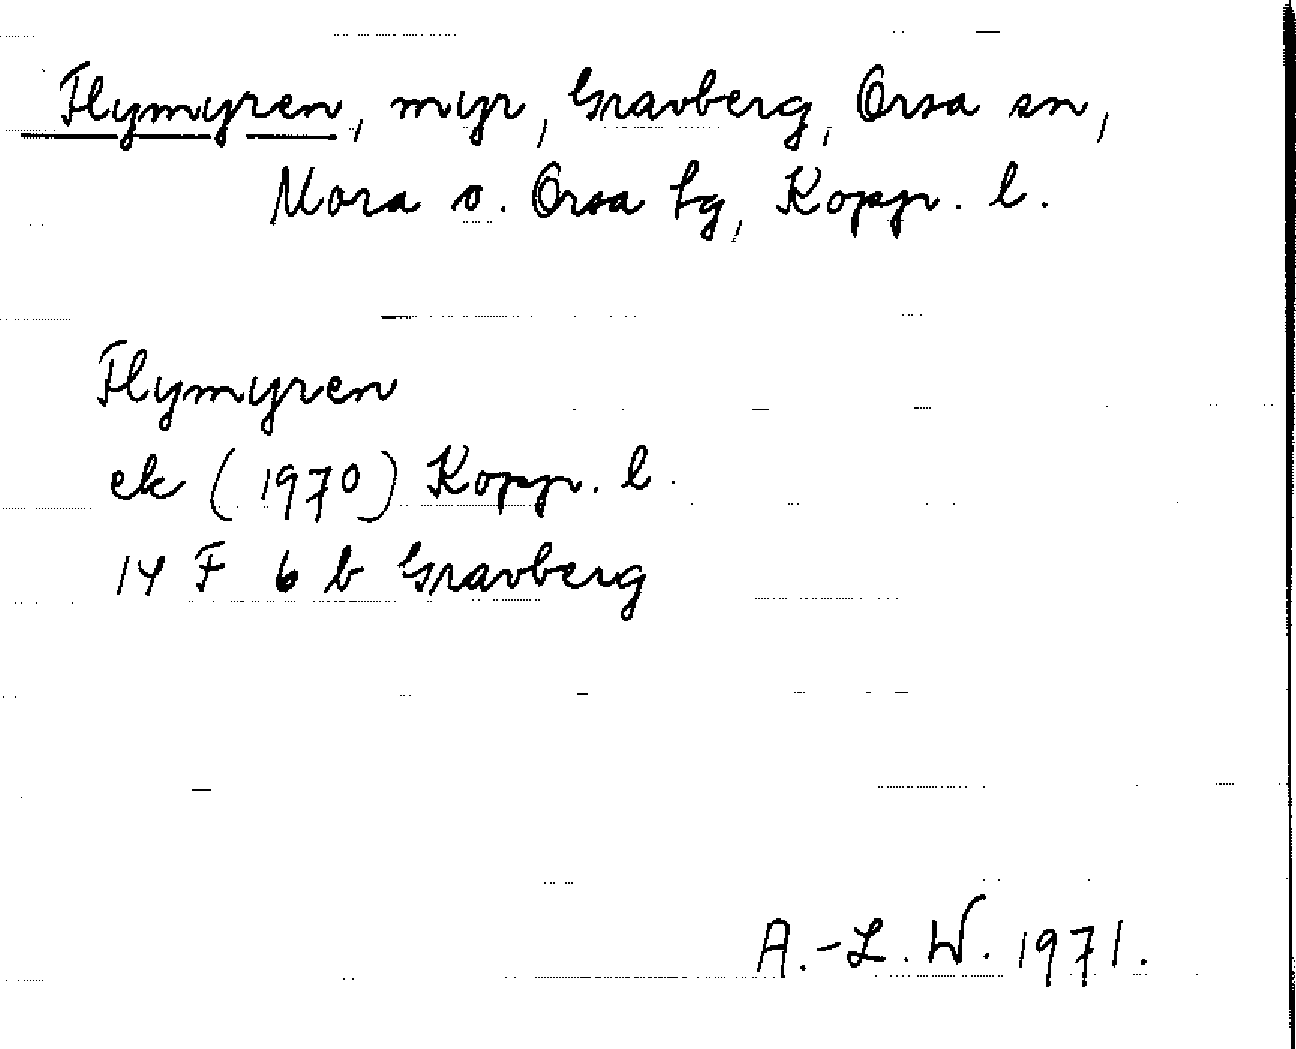 Flymyren, myr, Gravberg, Orsa sn,
Mora o. Orsa tg, Kopp. l.
Flymyren
ek (1970) Kopp. l.
14 F 6 b Gravberg
A.-L. W. 1971.